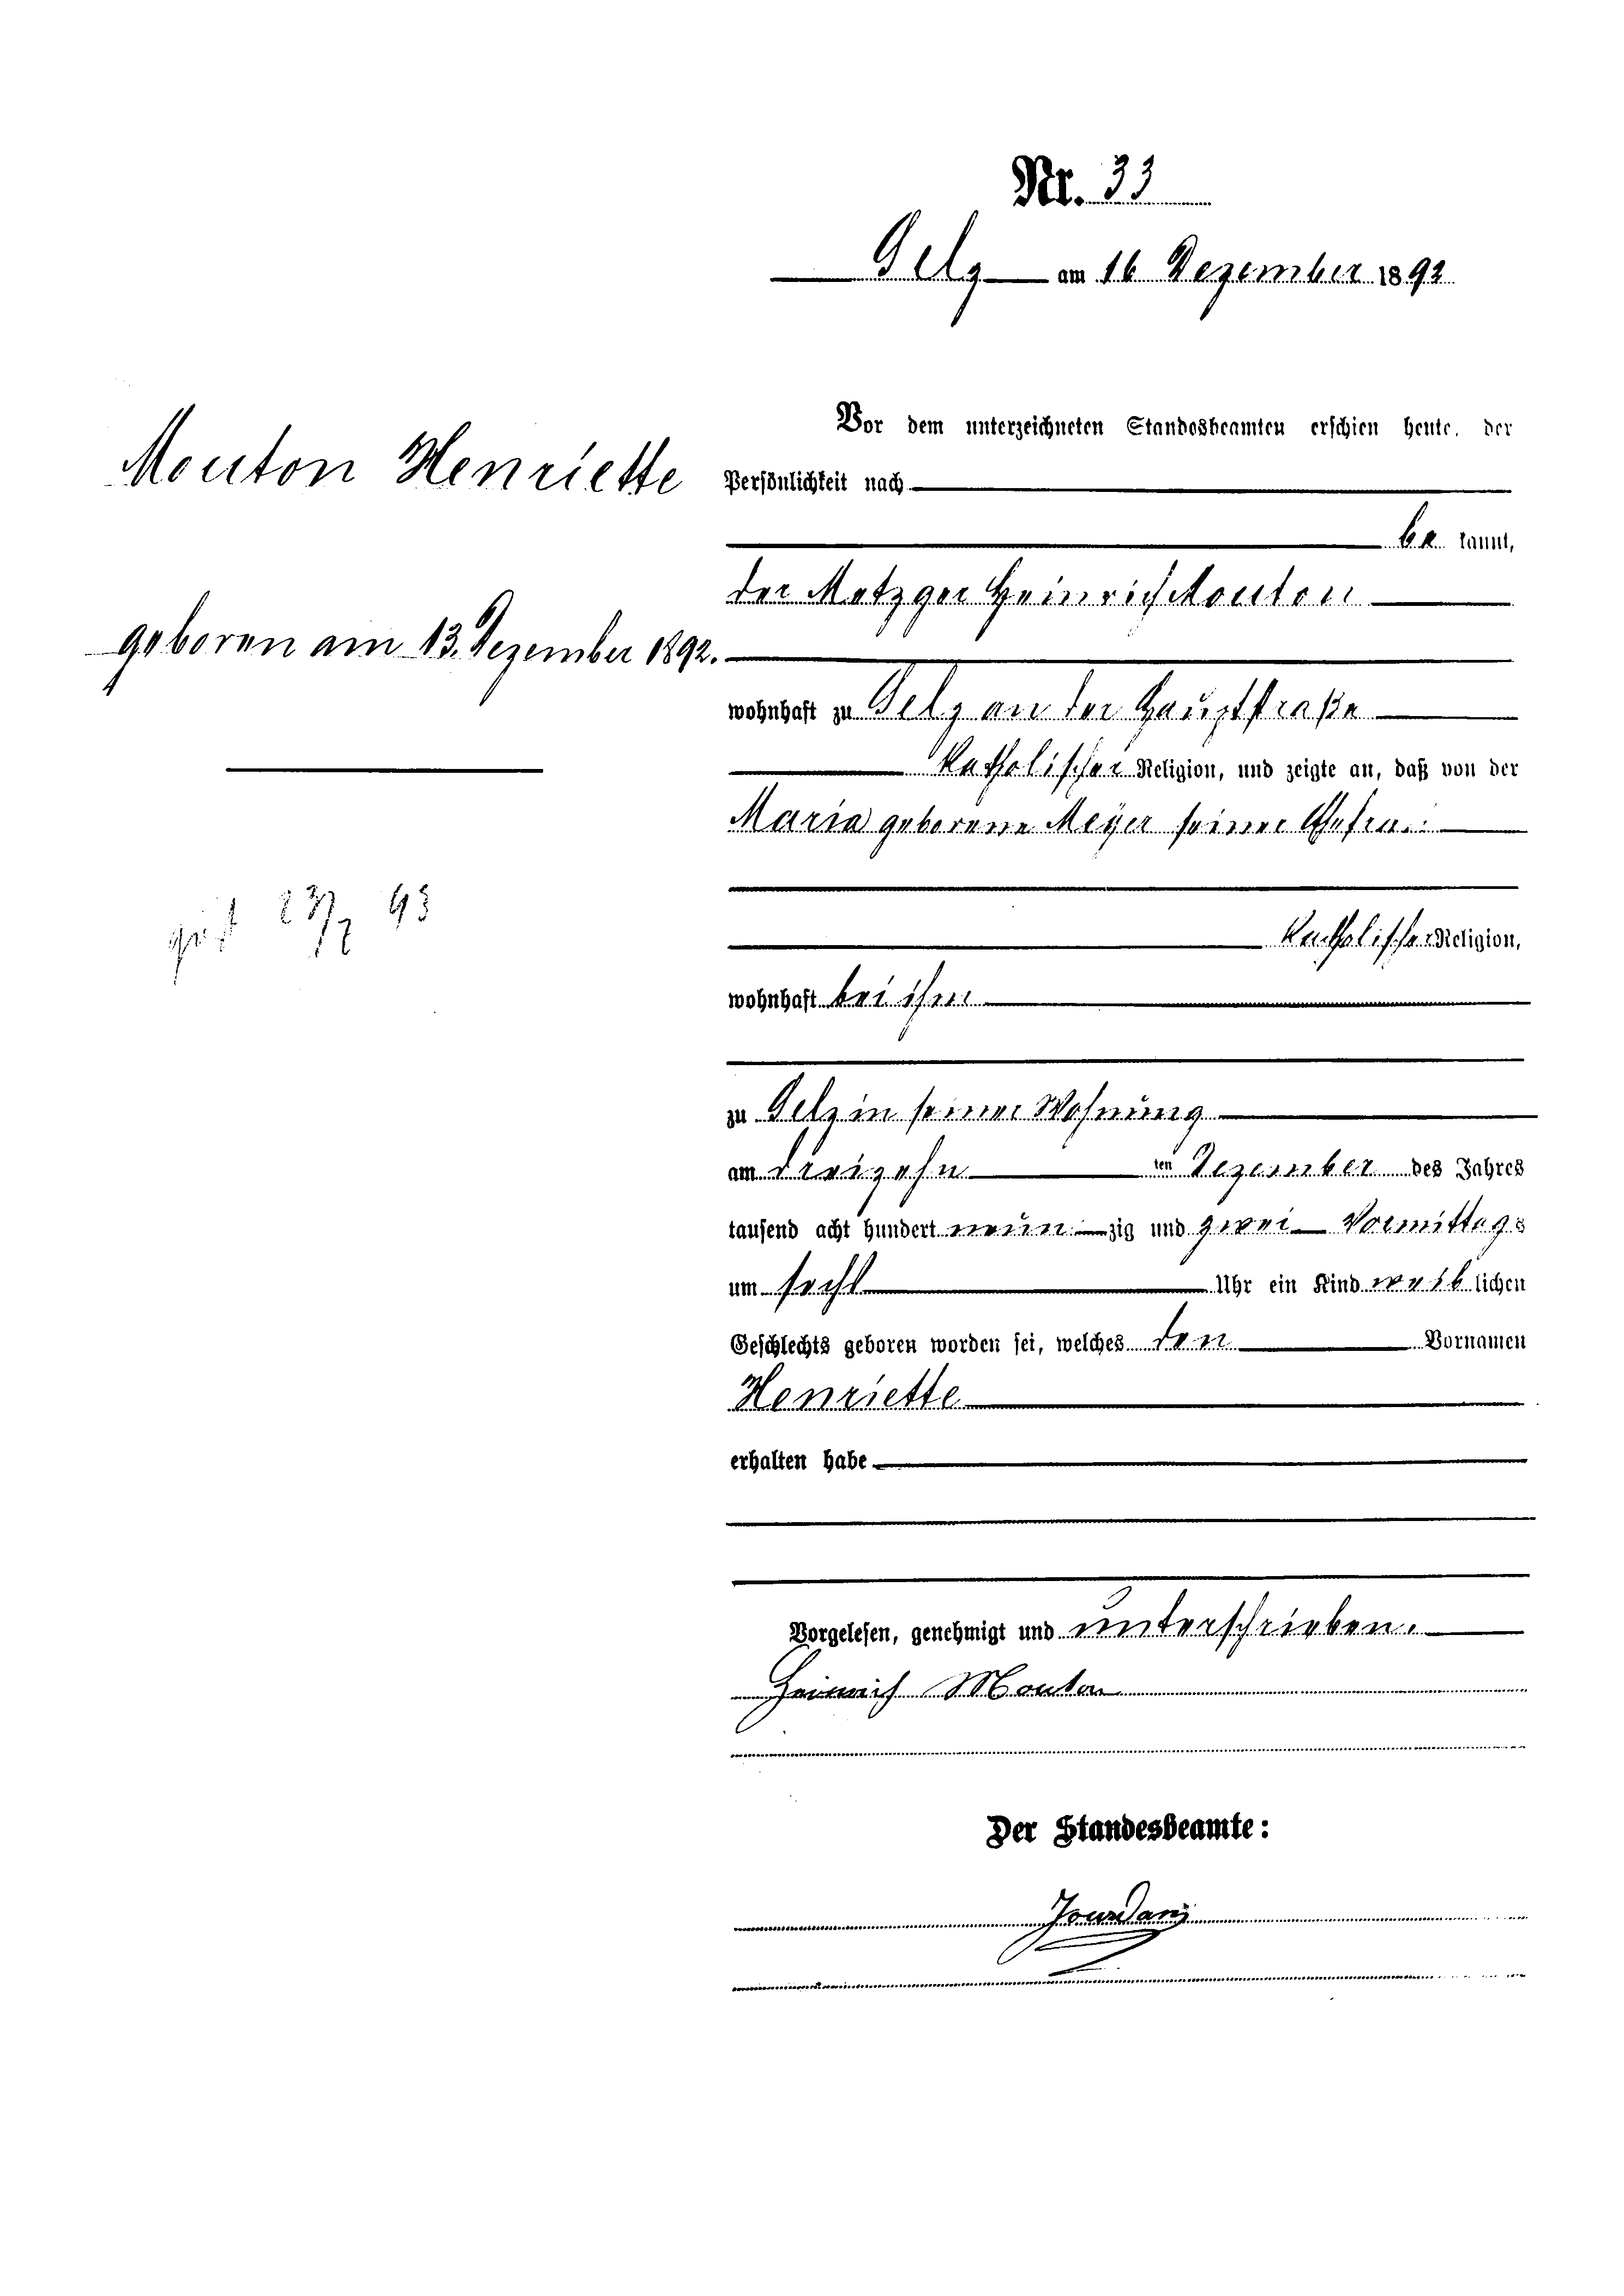 Nr. 33
Selz am 16 Dezember 1892
Mouton Henriette
geboren am 13. Dezember 1892.
23/7 93
Vor dem unterzeichneten Standesbeamten erschien heute, der
Persönlichkeit nach
be kannt,
der Metzger Heinrich Mouton
wohnhaft zu Selz an der Hauptstraße
katholischer Religion, und zeigte an, daß von der
Maria geborene Meyer seiner Ehefrau
katholischer Religion,
wohnhaft bei ihm
zu Selz in seiner Wohnung
am dreizehn ten Dezember des Jahres
tausend acht hundert neun zig und zwei Vormittags
um sechs Uhr ein Kind weib lichen
Geschlechts geboren worden sei, welches den Vornamen
Henriette
erhalten habe
Vorgelesen, genehmigt und unterschrieben.
Heinrich Mouton
Der Standesbeamte:
Jourdan